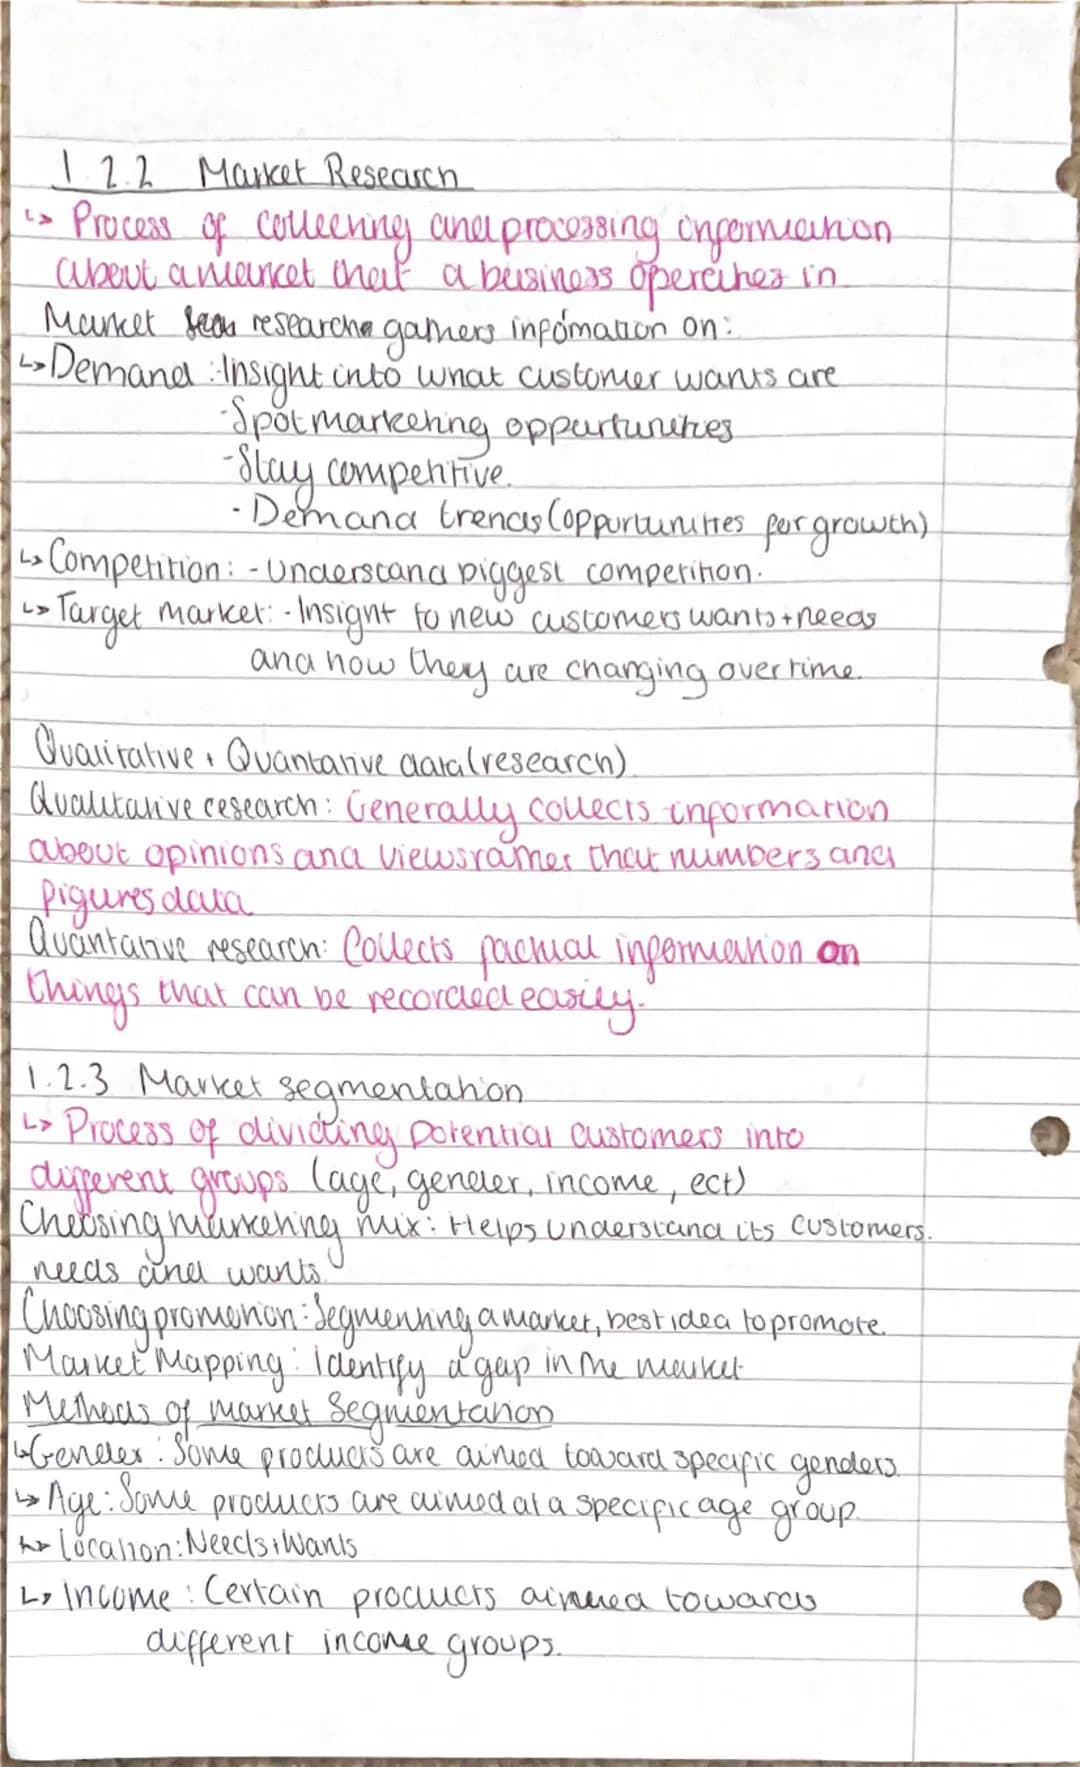 1.2.2 Market Research
↳ Process of collecting and processing information
about a market that a business operates in.
Market researche gathers infomation on:
↳ Demand: -Insight into what customer wants are
-Spot marketing oppurtunities
-Stay competitive.
-Demand trends (oppurtunities for growth)
↳ Competition: - Understand biggest competition.
↳ Target market: - Insight to new customers wants + needs
and how they are changing over time.
Qualitative + Quantative data (research)
Qualitative research: Generally collects information
about opinions and views rather that numbers and
figures data
Quantative research: Collects factual information on
things that can be recorded easily.
1.2.3 Market segmentation
↳ Process of dividing potential customers into
different groups (age, gender, income, ect)
Choosing marketing mix: Helps understand its customers.
needs and wants.
Choosing promotion: Segmenting a market, best idea to promote.
Market Mapping: identify a gap in the market
Methods of market Segmentation
↳ Gender: Some products are aimed toward specific genders.
↳ Age: Some products are aimed at a specific age group.
↳ Location: Needs + Wants
↳ Income: Certain products aimed towards
different income groups.